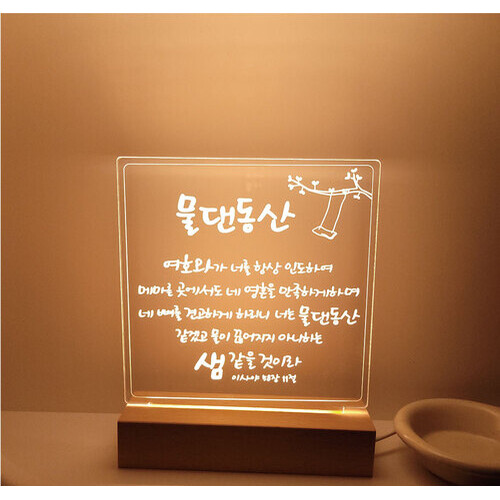 물댄동산
여호와가 너를 항상 인도하여
메마른 곳에서도 네 영혼을 만족하게하며
네 뼈를 견고하게 하리니 너는 물댄동산
같겠고 물이 끊어지지 아니하는
샘 같을 것이라
이사야 58장 11절